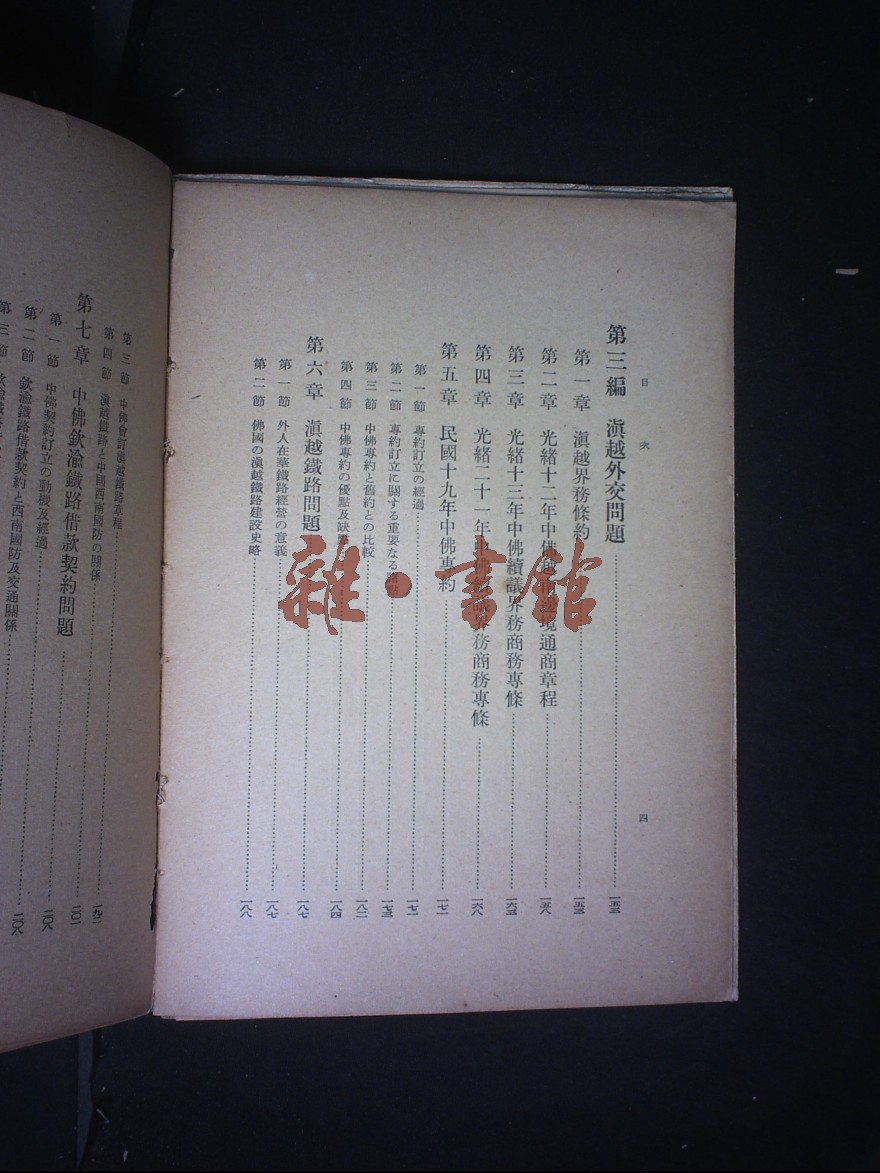 目次
四
第三編 滇越外交問題 一五三
第一章 滇越界務條約 一五三
第二章 光緒十二年中佛越南邊境通商章程 一五八
第三章 光緒十三年中佛續議界務商務專條 一六三
第四章 光緒二十一年中佛續議界務商務專條 一六八
第五章 民國十九年中佛專約 一七一
第一節 專約訂立の經過 一七一
第二節 專約訂立に關する重要なる 一七三
第三節 中佛專約と舊約との比較 一八二
第四節 中佛專約の優點及缺點 一八四
第六章 滇越鐵路問題 一八七
第一節 外人在華鐵路經營の意義 一八七
第二節 佛國の滇越鐵路建設史略 一八八
第三節 中佛會訂滇越鐵路章程
第四節 滇越鐵路と中國西南國防の關係 一九二
第七章 中佛欽渝鐵路借款契約問題 二〇一
第一節 中佛契約訂立の動機及經過 二〇八
第二節 欽渝鐵路借款契約と西南國防及交通關係 二〇八
第三節 欽渝鐵路
雜·書館